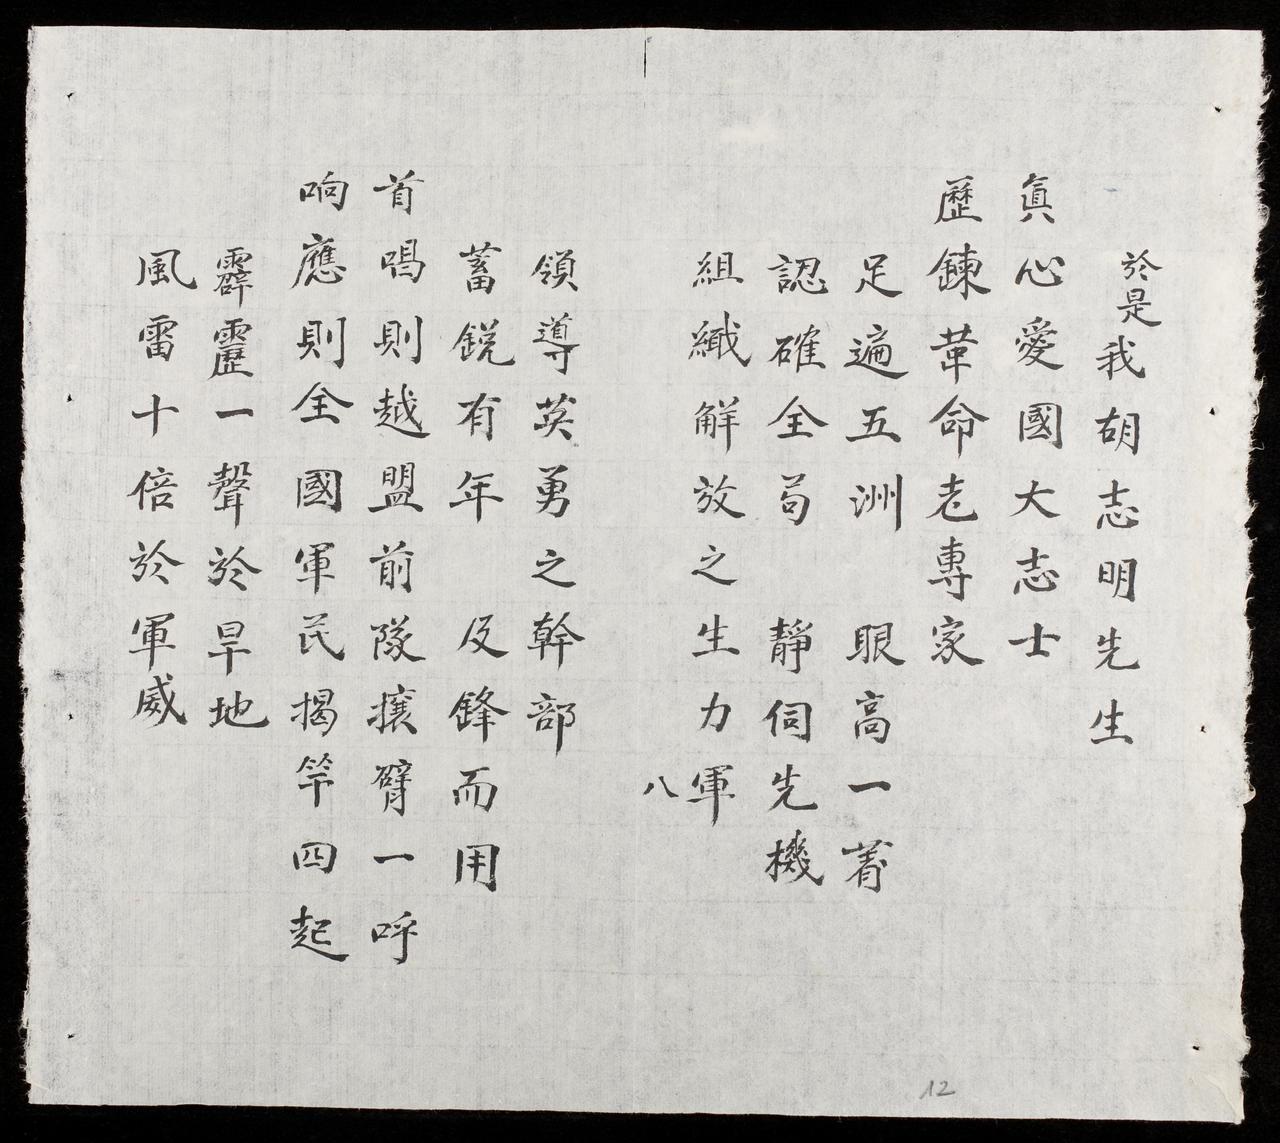 於是我胡志明先生
眞心愛國大志士
歷鍊革命老專家
足遍五洲　眼高一着
認確全局　靜伺先機
組織解放之生力軍
八
領導英勇之幹部
蓄銳有年　及鋒而用
首唱則越盟前隊攘臂一呼
响應則全國軍民揭竿四起
霹靂一聲於旱地
風雷十倍於軍威
12